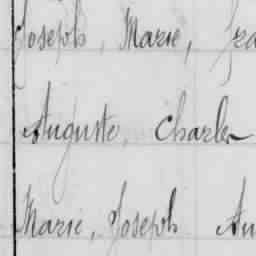 Joseph, Marie, fra
Auguste, Charles
Marie, Joseph Au